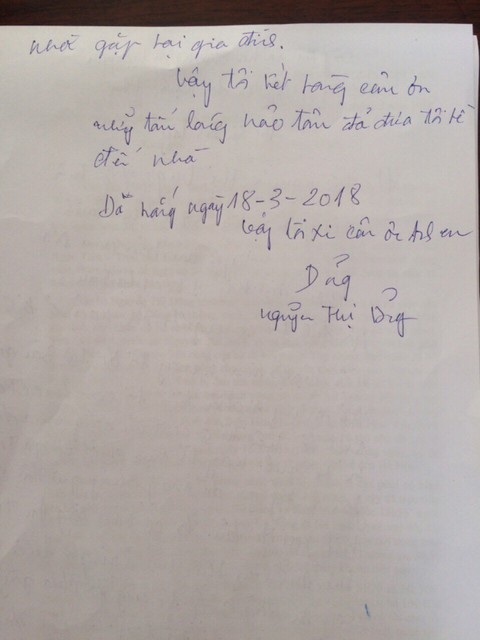 nhà gặp tại gia đih.
Vậy tôi hết lòng cảm ơn
những tấm lòng hảo tâm đã đưa tôi về
đến nhà
Đà nẵng ngày 18-3-2018
Vậy tôi xi cảm ơn
Dảg
nguyễn Thị Dảg